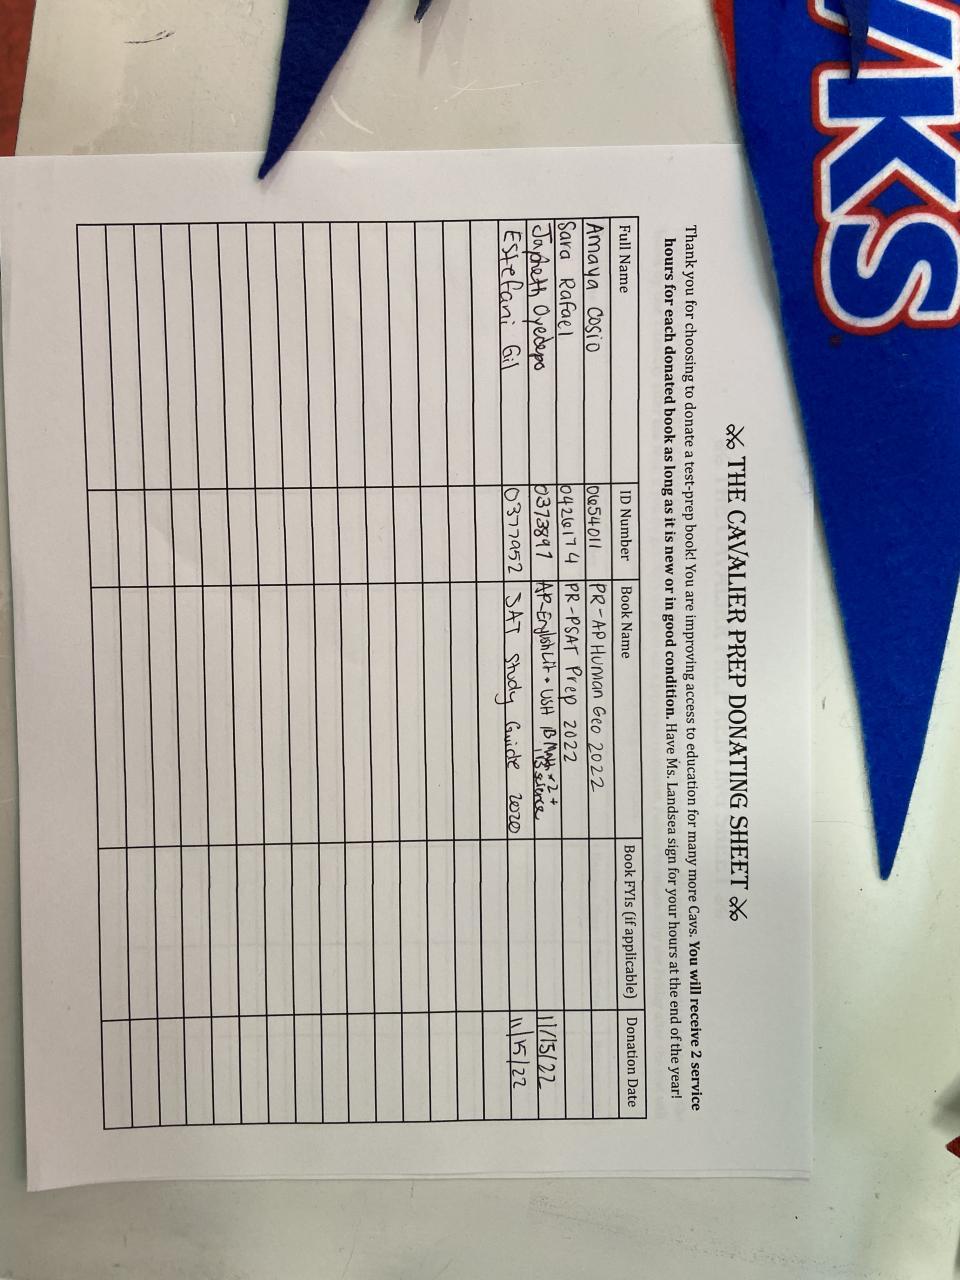 WKS
THE CAVALIER PREP DONATING SHEET
Thank you for choosing to donate a test-prep book! You are improving access to education for many more Cavs. You will receive 2 service
hours for each donated book as long as it is new or in good condition. Have Ms. Landsea sign for your hours at the end of the year!
Full Name ID Number Book Name Book FYIs (if applicable) Donation Date
Amaya Cosio 0654011 PR-AP Human Geo 2022
Sara Rafael 0426174 PR-PSAT Prep 2022
Japheth Oyedepo 0373897 AP-English Lit + USH IB Math x2 + 11/15/22
IB science
Estefani Gil 0377952 SAT Study Guide 2020 11/15/22